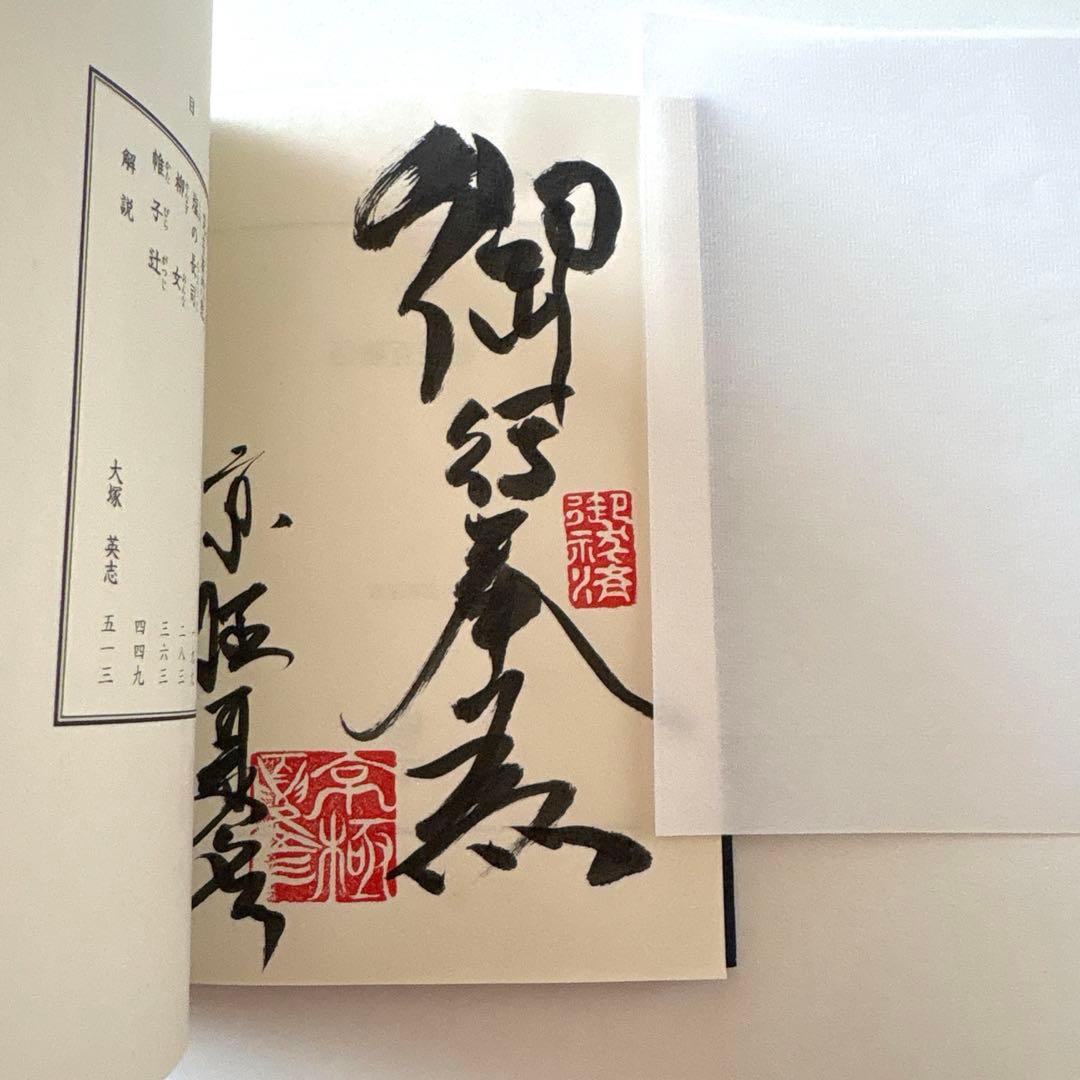 御行奉為
御祓済
京極夏彦
京極夏彦
目
塩の長司 二八三
柳女 三六三
帷子辻 四四九
解説 大塚 英志 五一三